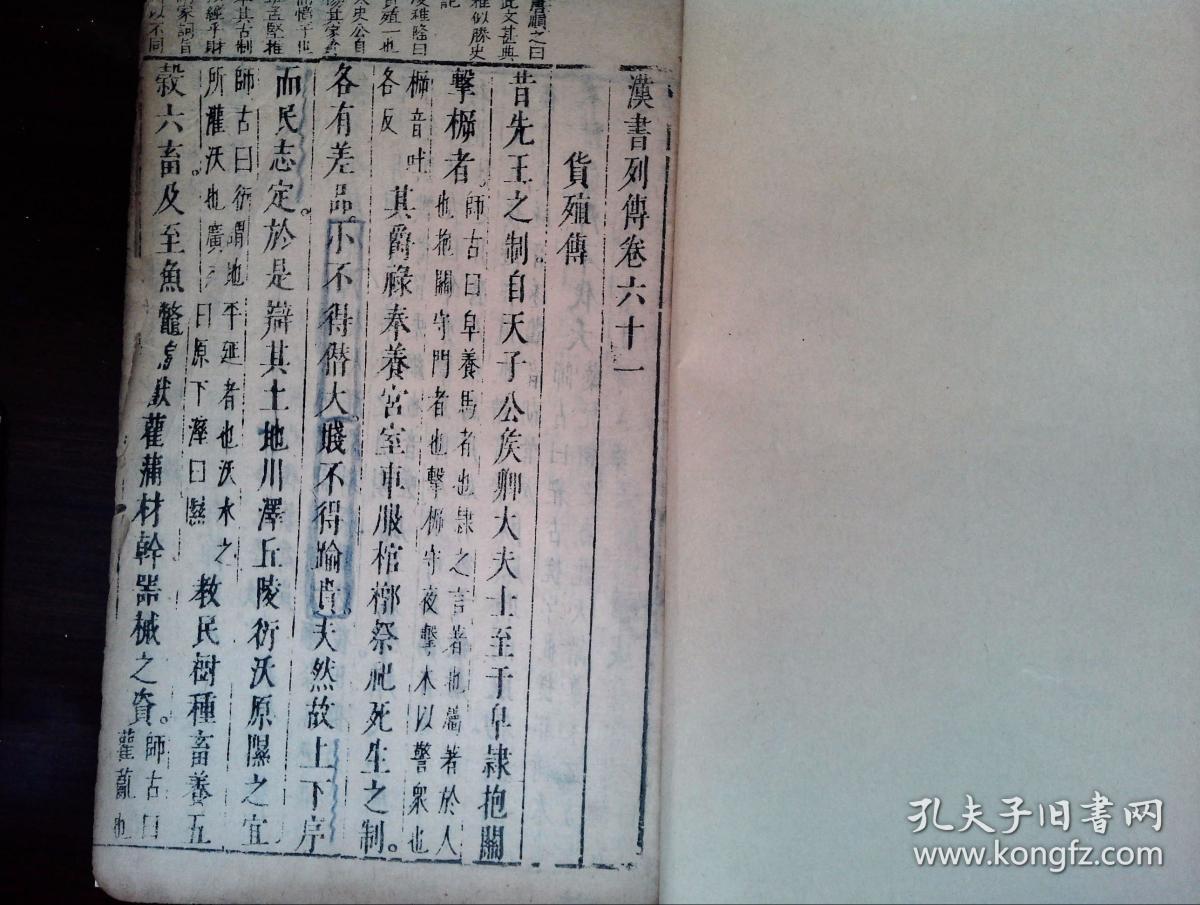 漢書列傳卷六十一
貨殖傳
昔先王之制自天子公侯卿大夫士至于皁隷抱關
擊柝者師古曰皁養馬者也隷之言著也屬著於人
也抱關守門者也擊柝守夜擊木以警衆也
柝音吐
各反
其爵祿奉養宮室車服棺槨祭祀死生之制
各有差品小不得僭大賤不得踰貴夫然故上下序
而民志定於是辯其土地川澤丘陵衍沃原隰之宜
師古曰衍謂地平延者也沃水之
所灌沃也廣平曰原下溼曰隰
教民樹種畜養五
穀六畜及至魚鼈鳥獸雚蒲材幹器械之資師古曰
雚薍也
唐順之曰
此文甚典
雅似勝史
記
凌稚隆曰
貨殖一也
太史公自
孔夫子旧书网
www.kongfz.com